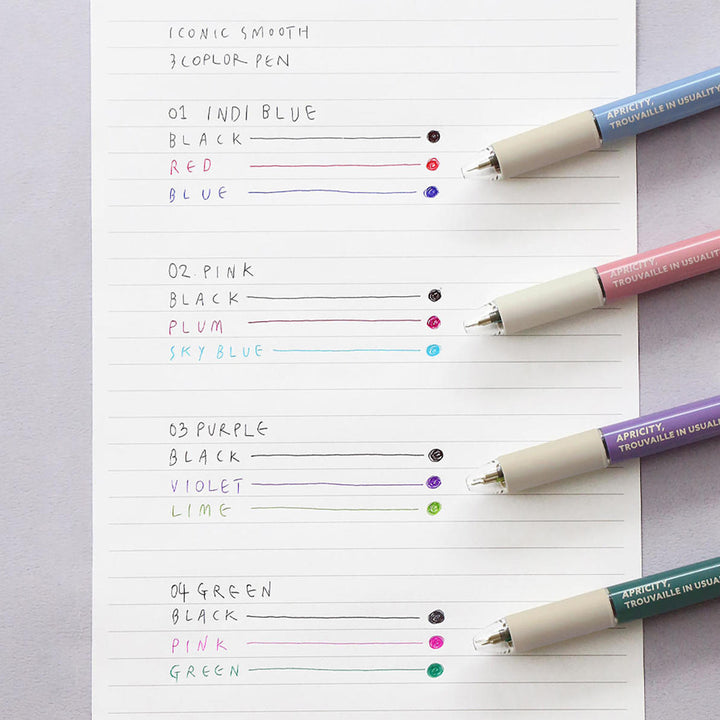 ICONIC SMOOTH
3COPLOR PEN
01 INDI BLUE
BLACK
RED
BLUE
APRICITY,
TROUVAILLE IN USUALITY
02. PINK
BLACK
PLUM
SKY BLUE
APRICITY,
TROUVAILLE IN USUALITY
03 PURPLE
BLACK
VIOLET
LIME
APRICITY,
TROUVAILLE IN USUALI
04 GREEN
BLACK
PINK
GREEN
APRICITY,
TROUVAILLE IN USUA